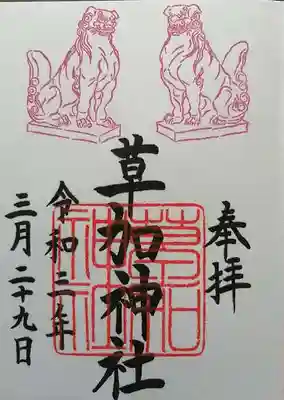 奉拝
草加神社
令和三年
三月二十九日